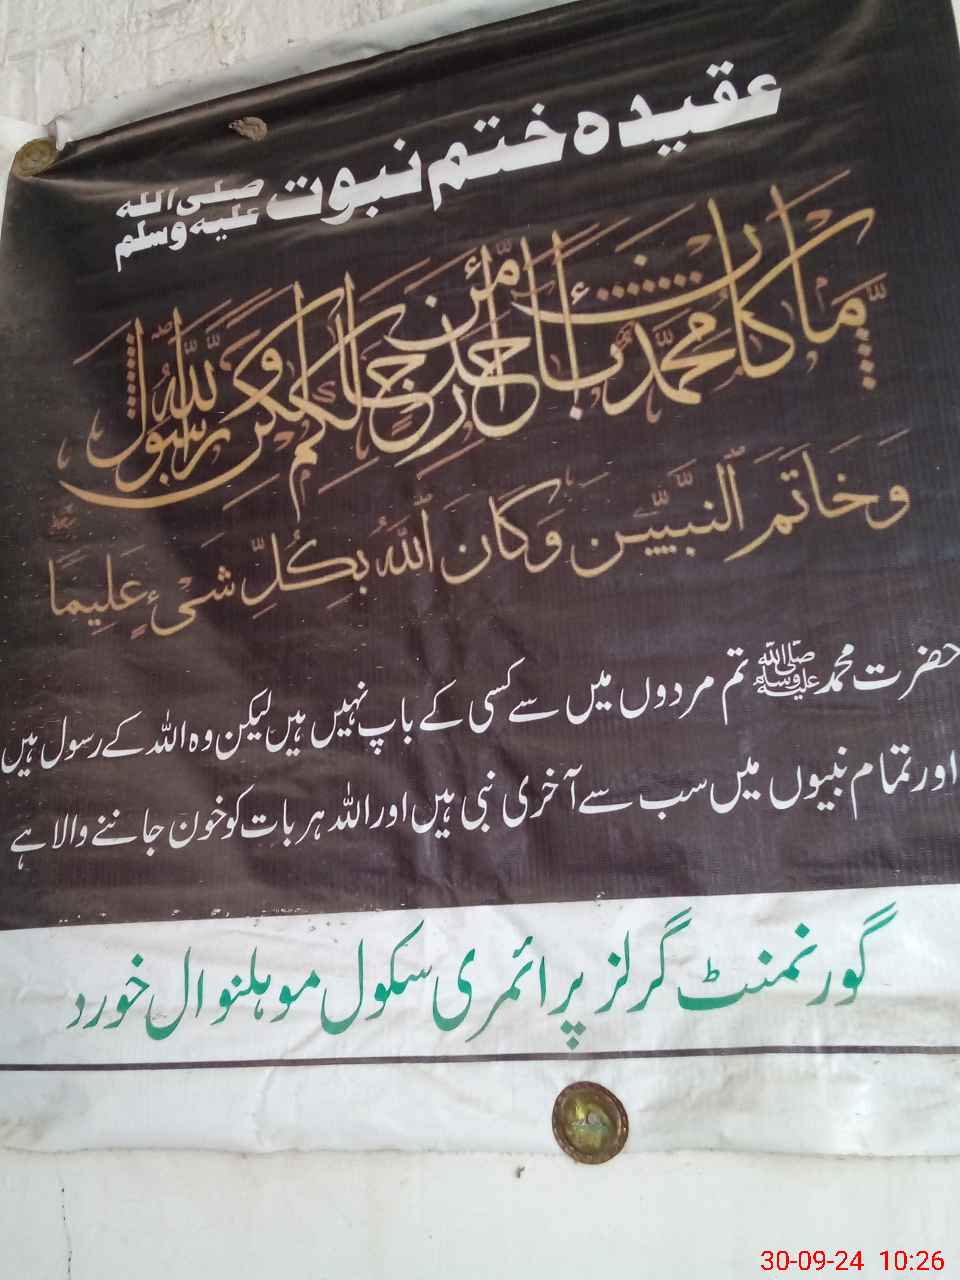 عقیدہ ختم نبوت صلی اللہ علیہ وسلم
مَا كَانَ مُحَمَّدٌ أَبَا أَحَدٍ مِّن رِّجَالِكُمْ وَلَٰكِن رَّسُولَ اللَّهِ
وَخَاتَمَ ٱلنَّبِيِّـۧنَ وَكَانَ ٱللَّهُ بِكُلِّ شَىْءٍ عَلِيمًا
حضرت محمد ﷺ تم مردوں میں سے کسی کے باپ نہیں ہیں لیکن وہ اللہ کے رسول ہیں
اور تمام نبیوں میں سب سے آخری نبی ہیں اور اللہ ہر بات کو خون جاننے والا ہے
گورنمنٹ گرلز پرائمری سکول موہلنوال خورد
30-09-24 10:26